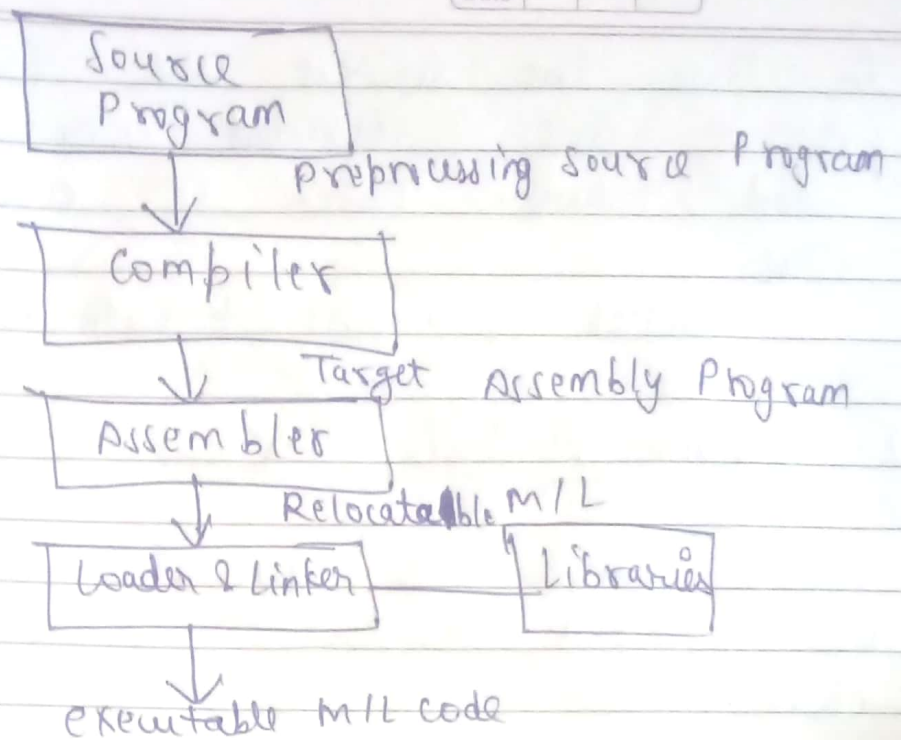 Source
Program
Preprocessing Source Program
Compiler
Target Assembly Program
Assembler
Relocatable M/L
Loader & Linker
Libraries
executable M/L code